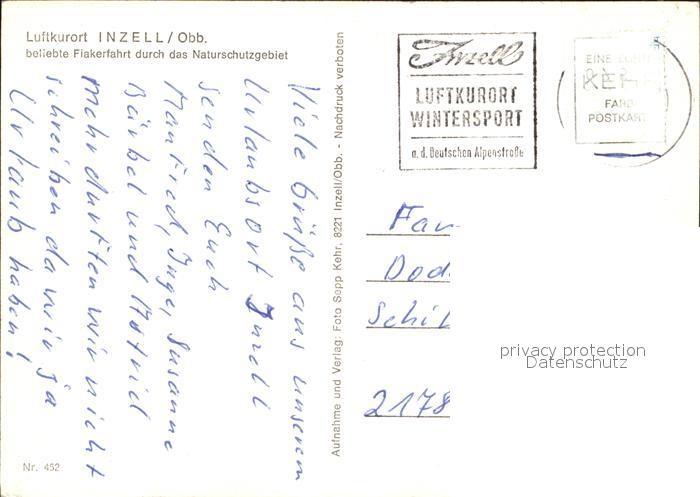 Luftkurort INZELL/Obb.
beliebte Fiakerfahrt durch das Naturschutzgebiet
Viele Grüße aus unserem
Urlaubsort Inzell
senden Euch
Manfred, Inge, Susanne
Bärbel und Astrid
Mehr durften wir nicht
schreiben da wir ja
Urlaub haben!
Nr. 452
Aufnahme und Verlag: Foto Sepp Kehr, 8221 Inzell/Obb. - Nachdruck verboten
Inzell
LUFTKURORT
WINTERSPORT
a.d. Deutschen Alpenstraße
EINE
KEHR
FARB
POSTKARTE
Fam
Dod
Schil
2178
privacy protection
Datenschutz